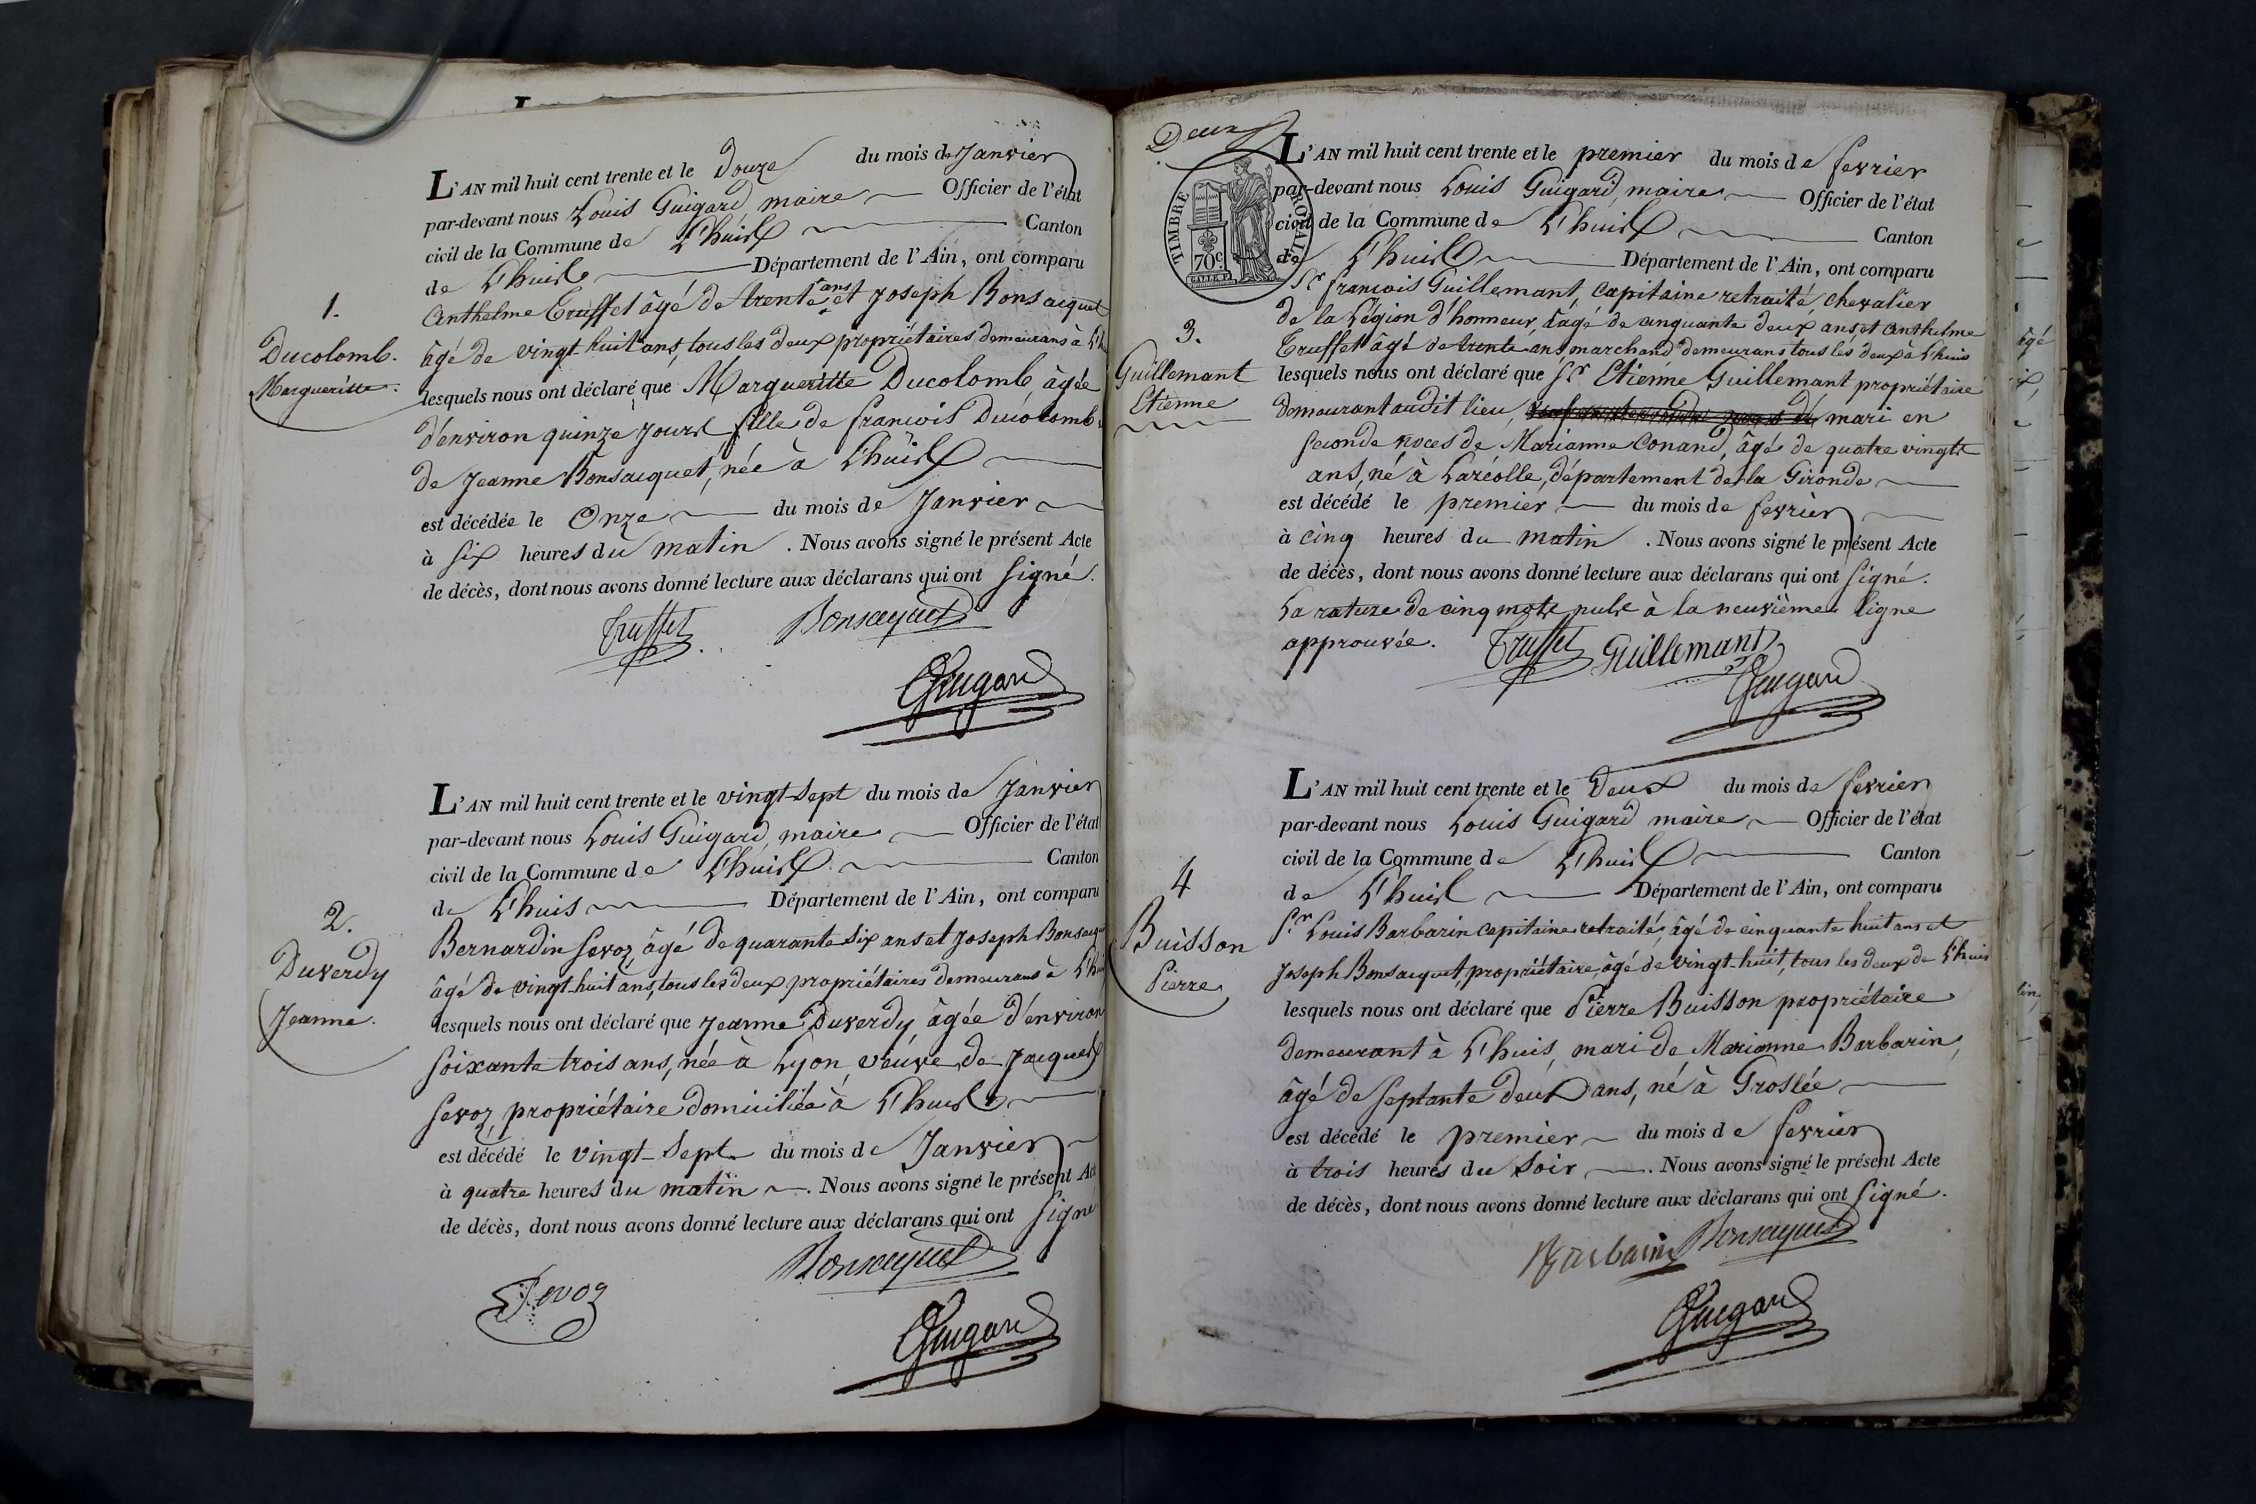 L'AN mil huit cent trente et le douze du mois de Janvier
par-devant nous Louis Guigard, maire Officier de l'état
civil de la Commune de L'huis Canton
de L'huis Département de l'Ain, ont comparu
Anthelme Truffet âgé de trente ans et Joseph Bonsacquet
âgé de vingt-huit ans, tous les deux propriétaires demeurans à L'h
lesquels nous ont déclaré que Marguéritte Ducolomb âgée
d'environ quinze jours fille de françois Ducolomb
de Jeanne Bonsacquet, née à L'huis
est décédée le Onze du mois de Janvier
à six heures du matin . Nous avons signé le présent Acte
de décès, dont nous avons donné lecture aux déclarans qui ont signé.
1.
Ducolomb.
Marguéritte.
Truffet Bonsacquet
Guigard
L'AN mil huit cent trente et le vingt-sept du mois de Janvier
par-devant nous Louis Guigard, maire Officier de l'état
civil de la Commune de L'huis Canton
de L'huis Département de l'Ain, ont comparu
Bernardin Sevoz, âgé de quarante six ans et Joseph Bonsacqu
âgé de vingt-huit ans, tous les deux propriétaires demeurans à L'hu
lesquels nous ont déclaré que Jeanne Duverdy âgée d'environ
soixante trois ans, née à Lyon, veuve de Jacques
Sevoz, propriétaire domiciliée à L'huis
est décédé le vingt-sept du mois de Janvier
à quatre heures du matin . Nous avons signé le présent Act
de décès, dont nous avons donné lecture aux déclarans qui ont signé
2.
Duverdy
Jeanne.
Bonsacquet
Sevoz
Guigard
Deux
TIMBRE ROYAL
70c.
L'AN mil huit cent trente et le premier du mois de fevrier
par-devant nous Louis Guigard, maire Officier de l'état
civil de la Commune de L'huis Canton
de L'huis Département de l'Ain, ont comparu
Sr. françois Guillemant, capitaine retraité, chevalier
de la Légion d'honneur, âgé de cinquante deux ans, et Anthelme
Truffet âgé de trente ans, marchand demeurans tous les deux à L'huis
lesquels nous ont déclaré que Sr. Etienne Guillemant propriétaire
demeurant audit lieu, mari en
seconde noces de Marianne Conand, âgé de quatre vingts
ans, né à Laréolle, département de la Gironde
est décédé le premier du mois de fevrier
à cinq heures du matin . Nous avons signé le présent Acte
de décès, dont nous avons donné lecture aux déclarans qui ont signé.
La rature de cinq mots nuls à la neuvième ligne
approuvée. Truffet Guillemant
Guigard
3.
Guillemant
Etienne
L'AN mil huit cent trente et le Deux du mois de fevrier
par-devant nous Louis Guigard maire Officier de l'état
civil de la Commune de L'huis Canton
de L'huis Département de l'Ain, ont comparu
Sr. Louis Barbarin capitaine retraité, âgé de cinquante huit ans et
Joseph Bonsacquet, propriétaire, âgé de vingt-huit, tous les deux de L'huis
lesquels nous ont déclaré que Pierre Buisson propriétaire
demeurant à L'huis, mari de Marianne Barbarin,
âgé de septante deux ans, né à Groslée
est décédé le premier du mois de fevrier
à trois heures du soir . Nous avons signé le présent Acte
de décès, dont nous avons donné lecture aux déclarans qui ont signé.
4
Buisson
Pierre
Barbarin Bonsacquet
Guigard